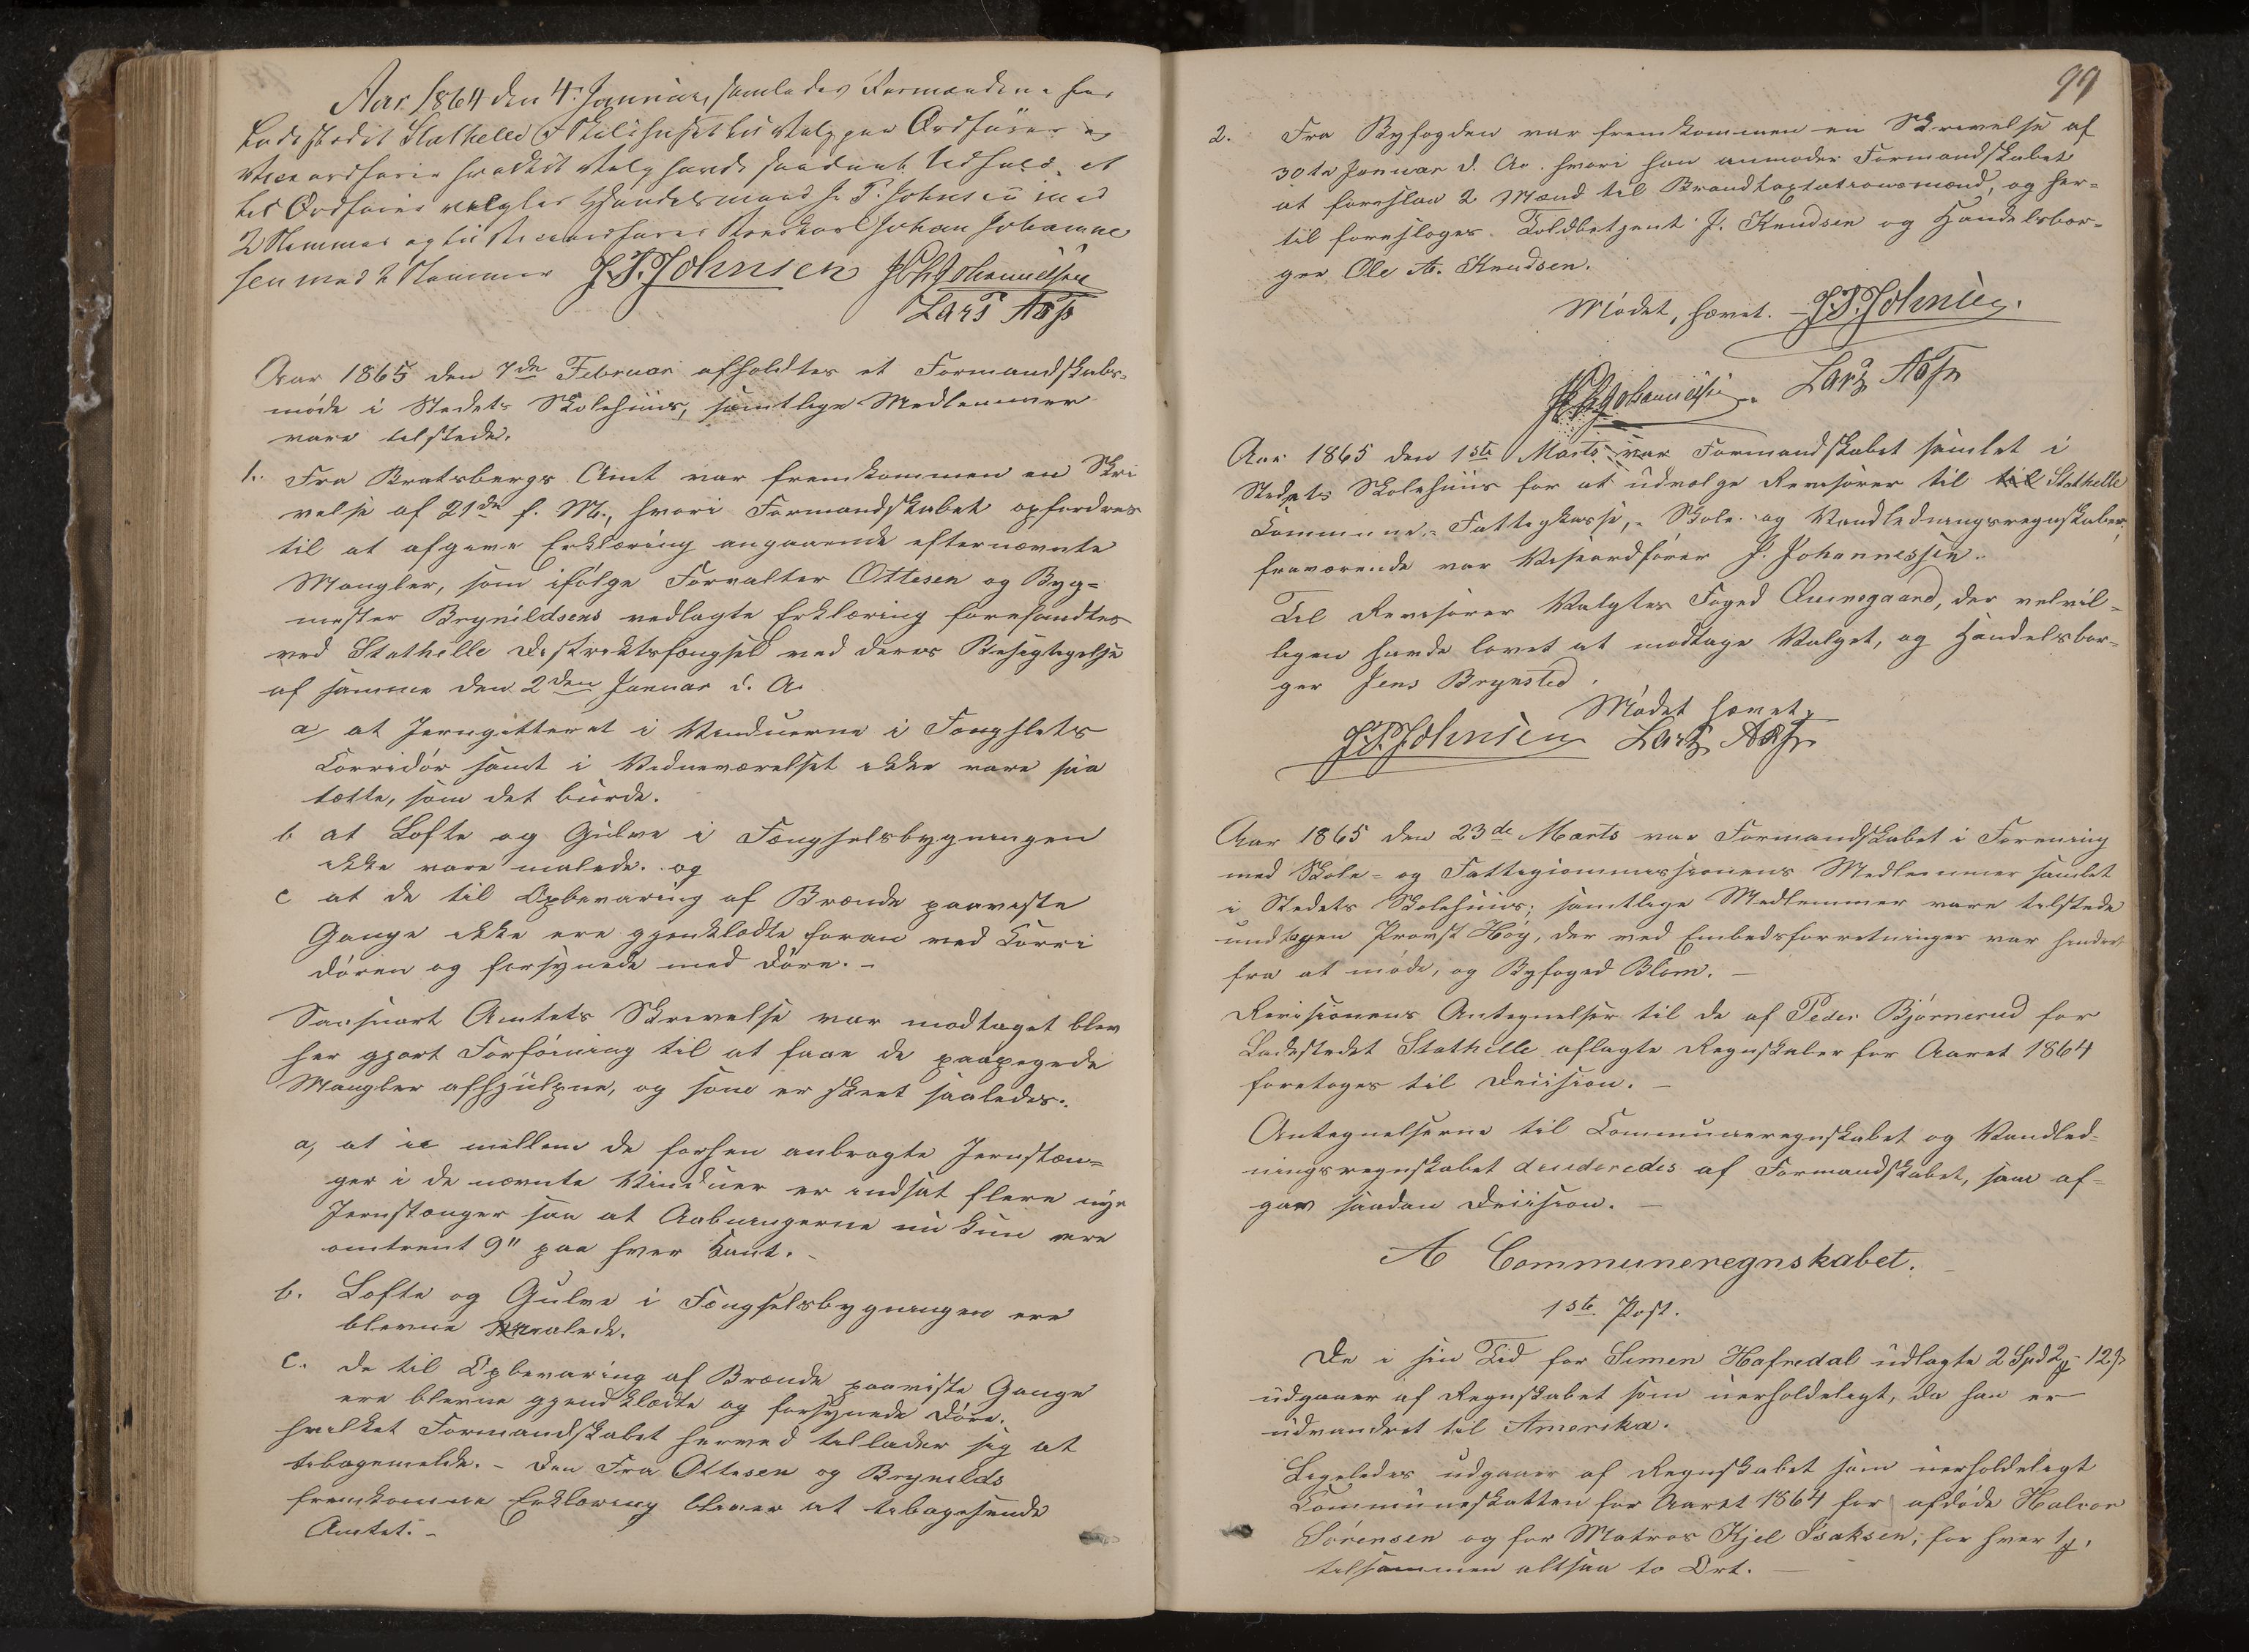 Aar 1864 den 4. Januar, samledes Formændene for
Ladestedet Stathelle i Skolehuset til Valg paa Ordfører og
Viceordfører hvilket Valg havde saadant Udfald, at
til Ordfører valgtes Handelsmand J. P. Johnsen med
2 Stemmer og til Viceordfører Johan Johanne
sen med 2 Stemmer J. P. Johnsen Johannessen
Lars Aas
Aar 1865 den 7de Februar afholdtes et Formandskabs-
möde i Stedets Skolehuus, samtlige Medlemmer
vare tilstede.
1. Fra Bratsbergs Amt var fremkommen en Skri
velse af 21de f. M., hvori Formandskabet opfordres
til at afgive Erklæring angaaende efternævnte
Mangler, som ifölge Forvalter Ottesen og Byg-
mester Brynildsens vedlagte Erklæring forefandtes
ved Stathelle Distriktsfængsel ved deres Besigtigelse
af samme den 2den Januar d. A.
a, at Jerngitteret i Vinduerne i Fængslets
Corridör samt i Vidneværelset ikke vare saa
tætte, som det burde.
b at Lofte og Gulve i Fængselsbygningen
ikke vare malede. og
c at de til Opbevaring af Brænde paaviste
Gange ikke ere gjenklædte foran ved Corri
dören og forsynede med Döre. -
Saasnart Amtets Skrivelse var modtaget blev
her gjort Forföining til at faae de paapegede
Mangler afhjulpne, og som er skeet saaledes.
a, at imellem de forhen anbragte Jernstæn-
ger i de nævnte Vinduer er indsat flere nye
Jernstænger saa at Aabningerne nu kun ere
omtrent 9" paa hver Kant. -
b. Lofte og Gulve i Fængselsbygningen ere
blevne malede.
c. de til Opbevaring af Brænde paaviste Gange
ere blevne gjendklædte og forsynede Döre.
hvilket Formandskabet herved tillader sig at
tilbagemelde. - Den Fra Ottesen og Brynilds
fremkomne Erklæring bliver at tilbagesende
Amtet. -
99
2. Fra Byfogden var fremkommen en Skrivelse af
30te Januar d. Aa. hvori han anmoder Formandskabet
at foreslaa 2 Mænd til Brandtaxtationsmænd, og her-
til foresloges. Toldbetjent J. Knudsen og Handelsbor-
ger Ole A. Knudsen.
Mödet, hævet. - J. P. Johnsen.
Johannessen. Lars Aas
Aar 1865 den 1ste Marts var Formandskabet samlet i
Stedets Skolehuus for at udvælge Revisorer til til Stathelle
Commune- Fattigkasse, - Skole- og Vandledningsregnskaber,
fraværende var Viseordförer J. Johannessen.
Til Revisorer Valgtes Foged Qvinsgaard, der velvil-
ligen havde lovet at modtage Valget, og Handelsbor-
ger Jens Brynsted.
Mödet hævet,
J. P. Johnsen Lars Aas
Aar 1865 den 23de Marts var Formandskabet i Forening
med Skole- og Fattigcommissionens Medlemmer samlet
i Stedets Skolehuus; samtlige Medlemmer vare tilstede
undtagen Provst Höy, der ved Embedsforretninger var hindret
fra at möde, og Byfoged Blom. -
Revisionens Antegnelser til de af Peder Björnerud for
Ladestedet Stathelle aflagte Regnskaber for Aaret 1864
foretoges til Decision. -
Antegnelserne til Communeregnskabet og Vandled-
ningsregnskabet decideredes af Formandskabet, som af-
gav saadan Decision. -
A Communeregnskabet. -
1ste Post.
De i sin Tid for Simen Hafredal udlagte 2 Spd 2 12 s
udgaaer af Regnskabet som uerholdeligt, da han er
udvandret til Amerika.
Ligeledes udgaaer af Regnskabet som uerholdeligt
Communeskatten for Aaret 1864 for afdöde Halvor
Sörensen og for Matros Kjel Isaksen, for hver 1
tilsammen altsaa to Ort. -